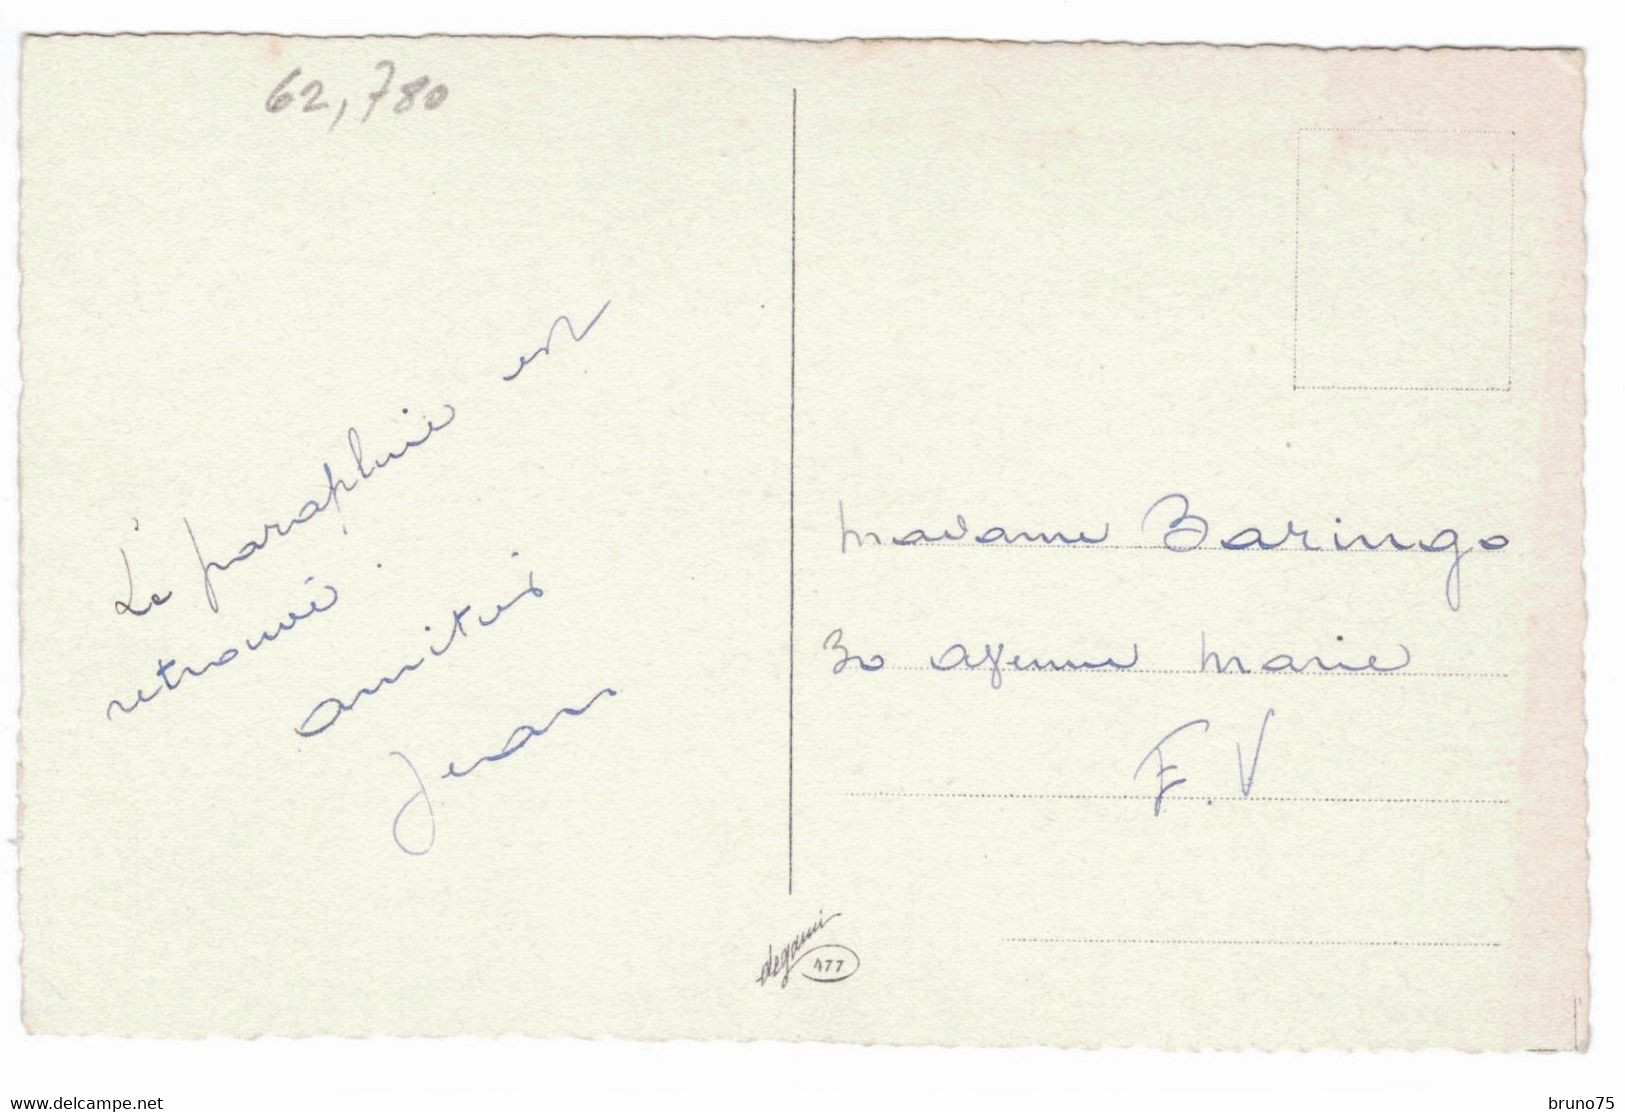 62,780
Le parapluie est
retrouvé.
amitiés
Jean
Madame Baringo
30 avenue Marie
E.V
degami
477
www.delcampe.net
bruno75